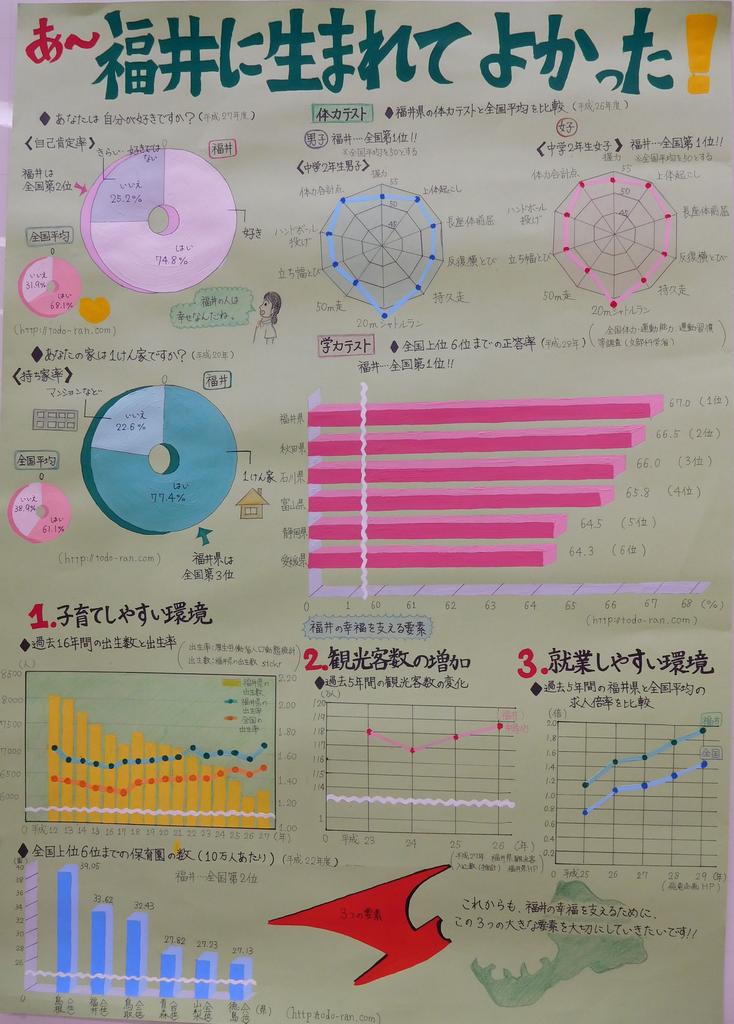 あ～福井に生まれてよかった!
◆あなたは自分が好きですか?(平成27年度)
〈自己肯定率〉
福井
福井は
全国第2位
きらい・好きではない
いいえ
25.2%
はい
74.8%
好き
全国平均
0
いいえ
31.9%
はい
68.1%
福井の人は
幸せなんだね。
(http://todo-ran.com)
体力テスト
◆福井県の体力テストと全国平均を比較(平成26年度)
男子 福井…全国第1位!!
※全国平均を50とする
〈中学2年生男子〉
握力
上体起こし
長座体前屈
反復横とび
持久走
20mシャトルラン
50m走
立ち幅とび
ハンドボール投げ
体力合計点
55
50
45
女子
〈中学2年生女子〉 福井…全国第1位!!
※全国平均を50とする
握力
上体起こし
長座体前屈
反復横とび
持久走
20mシャトルラン
50m走
立ち幅とび
ハンドボール投げ
体力合計点
55
50
45
(全国体力・運動能力、運動習慣
等調査(文部科学省))
◆あなたの家は1けん家ですか?(平成20年)
〈持ち家率〉
福井
マンションなど
いいえ
22.6%
はい
77.4%
1けん家
全国平均
0
いいえ
38.9%
はい
61.1%
福井県は
全国第3位
(http://todo-ran.com)
学力テスト
◆全国上位6位までの正答率(平成29年)
福井…全国第1位!!
福井県 67.0 (1位)
秋田県 66.5 (2位)
石川県 66.0 (3位)
富山県 65.8 (4位)
静岡県 64.5 (5位)
愛媛県 64.3 (6位)
0 1 60 61 62 63 64 65 66 67 68 (%)
(http://todo-ran.com)
福井の幸福を支える要素
1.子育てしやすい環境
◆過去16年間の出生数と出生率
(人)
8500
8000
7500
7000
6500
6000
福井県の出生数
福井県の出生率
全国の出生率
2.20
2.00
1.80
1.60
1.40
1.20
1.00
0 平成12 13 14 15 16 17 18 19 20 21 22 23 24 25 26 27 (年)
2.観光客数の増加
◆過去5年間の観光客数の変化
120
119
118
117
116
115
114
1
0 平成 23 24 25 26 (年)
3.就業しやすい環境
◆過去5年間の福井県と全国平均の
求人倍率を比較
(倍)
2.0
1.8
1.6
1.4
1.2
1.0
0.8
0.6
0.4
0.2
福井
全国
0 平成25 26 27 28 29 (年)
◆全国上位6位までの保育園の数(10万人あたり)(平成22年度)
福井…全国第2位
40
38
36
34
32
30
28
26
0
39.05
33.62
32.43
27.82
27.23
27.13
島根(1位)
福井(2位)
鳥取(3位)
青森(4位)
山梨(5位)
徳島(6位)
(県)
(http://todo-ran.com)
3つの要素
これからも、福井の幸福を支えるために、
この3つの大きな要素を大切にしていきたいです!!